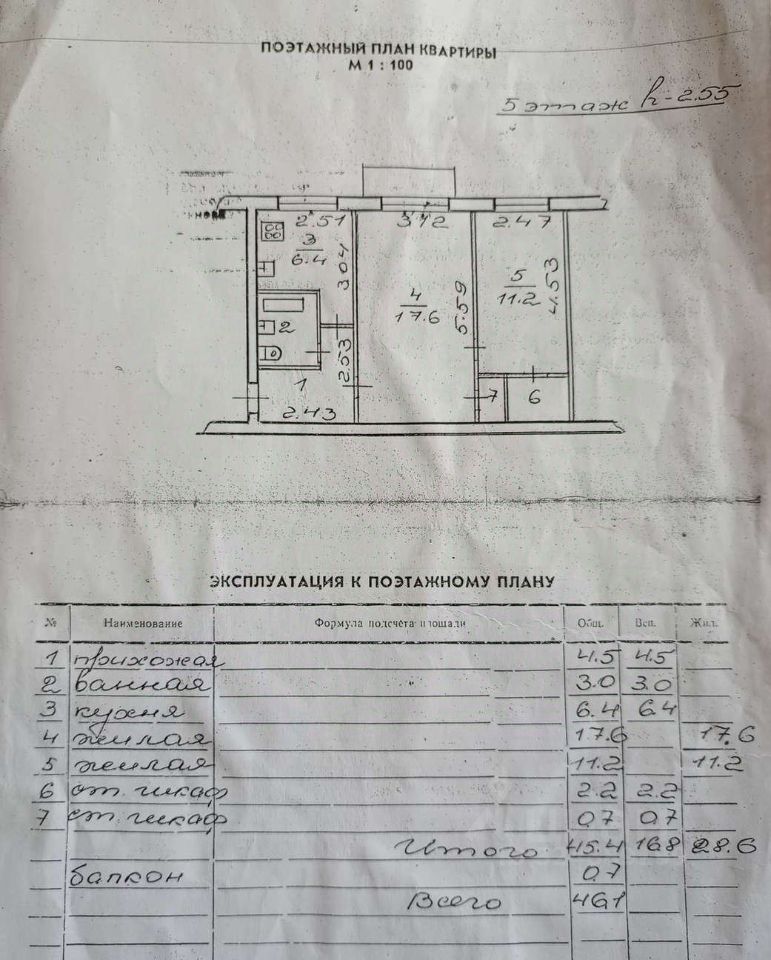 ПОЭТАЖНЫЙ ПЛАН КВАРТИРЫ
М 1 : 100
5 этаж h-2.55
2.51 3.12 2.47
3
6.4
3.04
4
17.6
5.59
5
11.2
4.53
2
2.53
1
2.43
7 6
ЭКСПЛУАТАЦИЯ К ПОЭТАЖНОМУ ПЛАНУ
№ Наименование Формула подсчета площади Общ. Всп. Жил.
1 прихожая 4.5 4.5
2 ванная 3.0 3.0
3 кухня 6.4 6.4
4 жилая 17.6 17.6
5 жилая 11.2 11.2
6 ст. шкаф 2.2 2.2
7 ст. шкаф 0.7 0.7
Итого 45.4 16.8 28.6
балкон 0.7
Всего 46.1